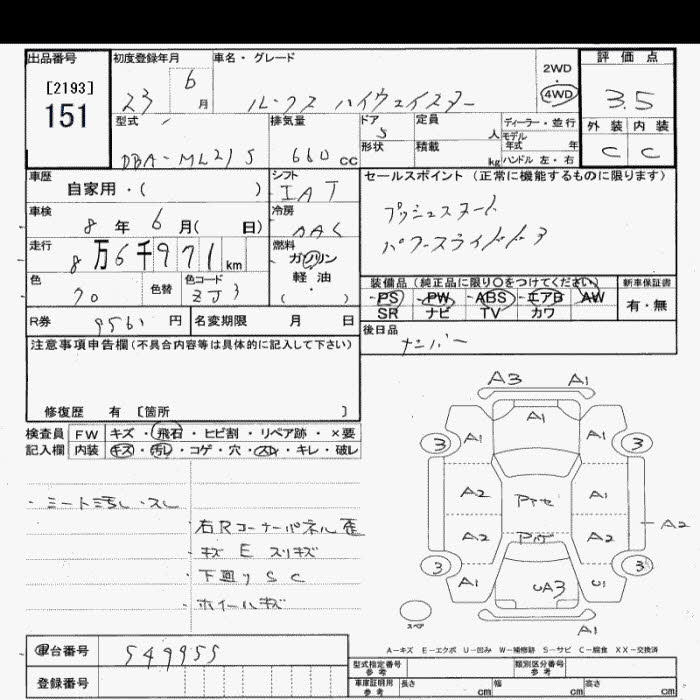 出品番号 初度登録年月 車名・グレード 評価点
[2193]
151
23 6 月 ルークス ハイウェイスター 2WD ・ 4WD 3.5
型式 排気量 ドア 定員 ディーラー・並行 外装 内装
DBA-ML21S 660 cc 5 人 モデル年式 年 C C
形状 積載 kg ハンドル 左・右
車歴 シフト セールスポイント (正常に機能するものに限ります)
自家用・( ) IAT
車検 冷房 プッシュスタート
8 年 6 月( 日) AAC パワースライドドア
走行 燃料
8万6千971 km ガソリン
軽油
・
( )
色 色替 色コード 装備品 (純正品に限り○をつけてください) 新車保証書
クロ ZJ3 PS PW ABS エアB AW 有・無
SR ナビ TV カワ
R券 9561 円 名変期限 月 日 後日品
ナンバー
注意事項申告欄(不具合内容等は具体的に記入して下さい)
修復歴 有 [箇所 ]
検査員 FW キズ・飛石・ヒビ割・リペア跡・×要
記入欄 内装 キズ・汚れ・コゲ・穴・スレ・キレ・破レ
・シート汚れ・スレ
・右Rコーナーパネル歪
・キズ E スリキズ
・下廻りSC
・ホイールキズ
A3 A1
A1
3 A1 A1 3
A2 A1
A2
A2 A2
3 A1 UA3 U1 3
スペア A1
A-キズ E-エクボ U-凹み W-補修跡 S-サビ C-腐食 XX-交換済
車台番号 549955
登録番号
型式指定番号 参考 類別区分番号 参考
車庫証明用 参考 長さ cm 幅 cm 高さ cm